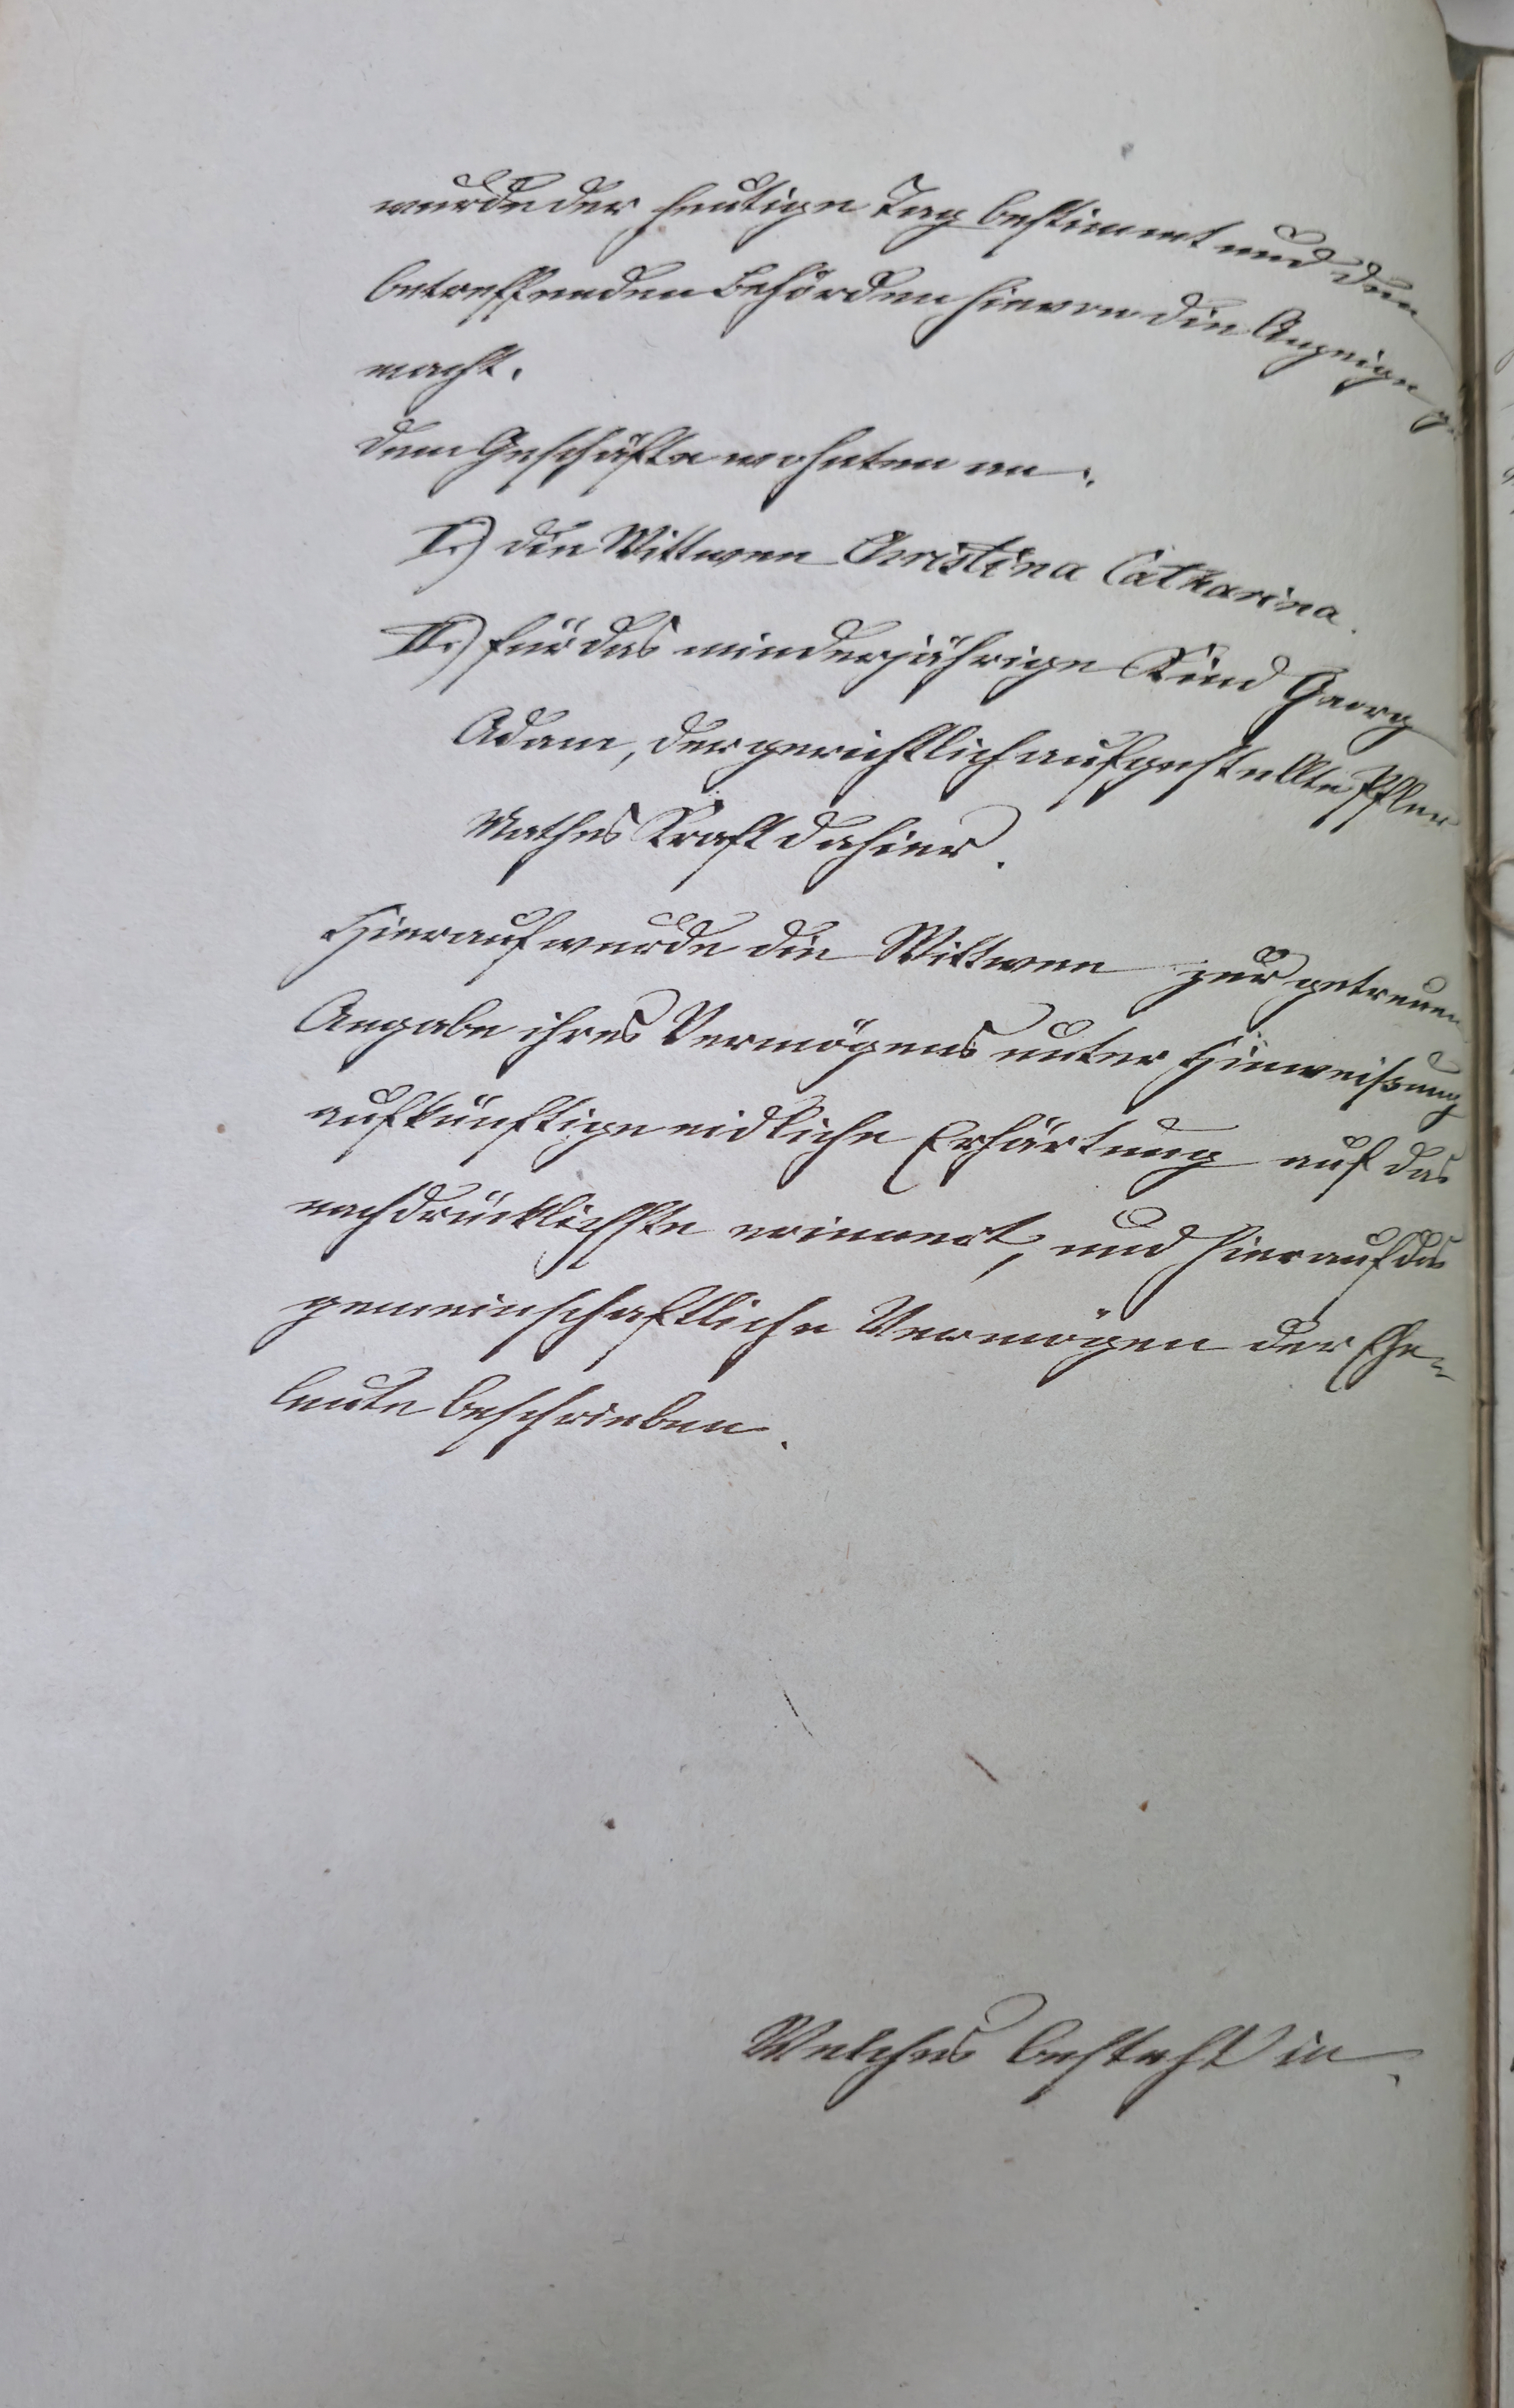 wurde der heutige Tag bestimmt und den
betreffenden Behörden hievon die Anzeige ge
macht.
Dem Geschäfte wohnten an:
I.) die Wittwee Christina Catharina.
II.) für das minderjährige Kind Georg
Adam, der gerichtlich aufgestellte Pfleger
Mathes Kraft dahier.
Hierauf wurde die Wittwee zur getreuen
Angabe ihres Vermögens unter Hinweisung
auf künftige eidliche Erhärtung auf das
nachdrücklichste erinnert, und hierauf das
gemeinschaftliche Vermögen der Ehe-
leute beschrieben.
Welches besteht in.